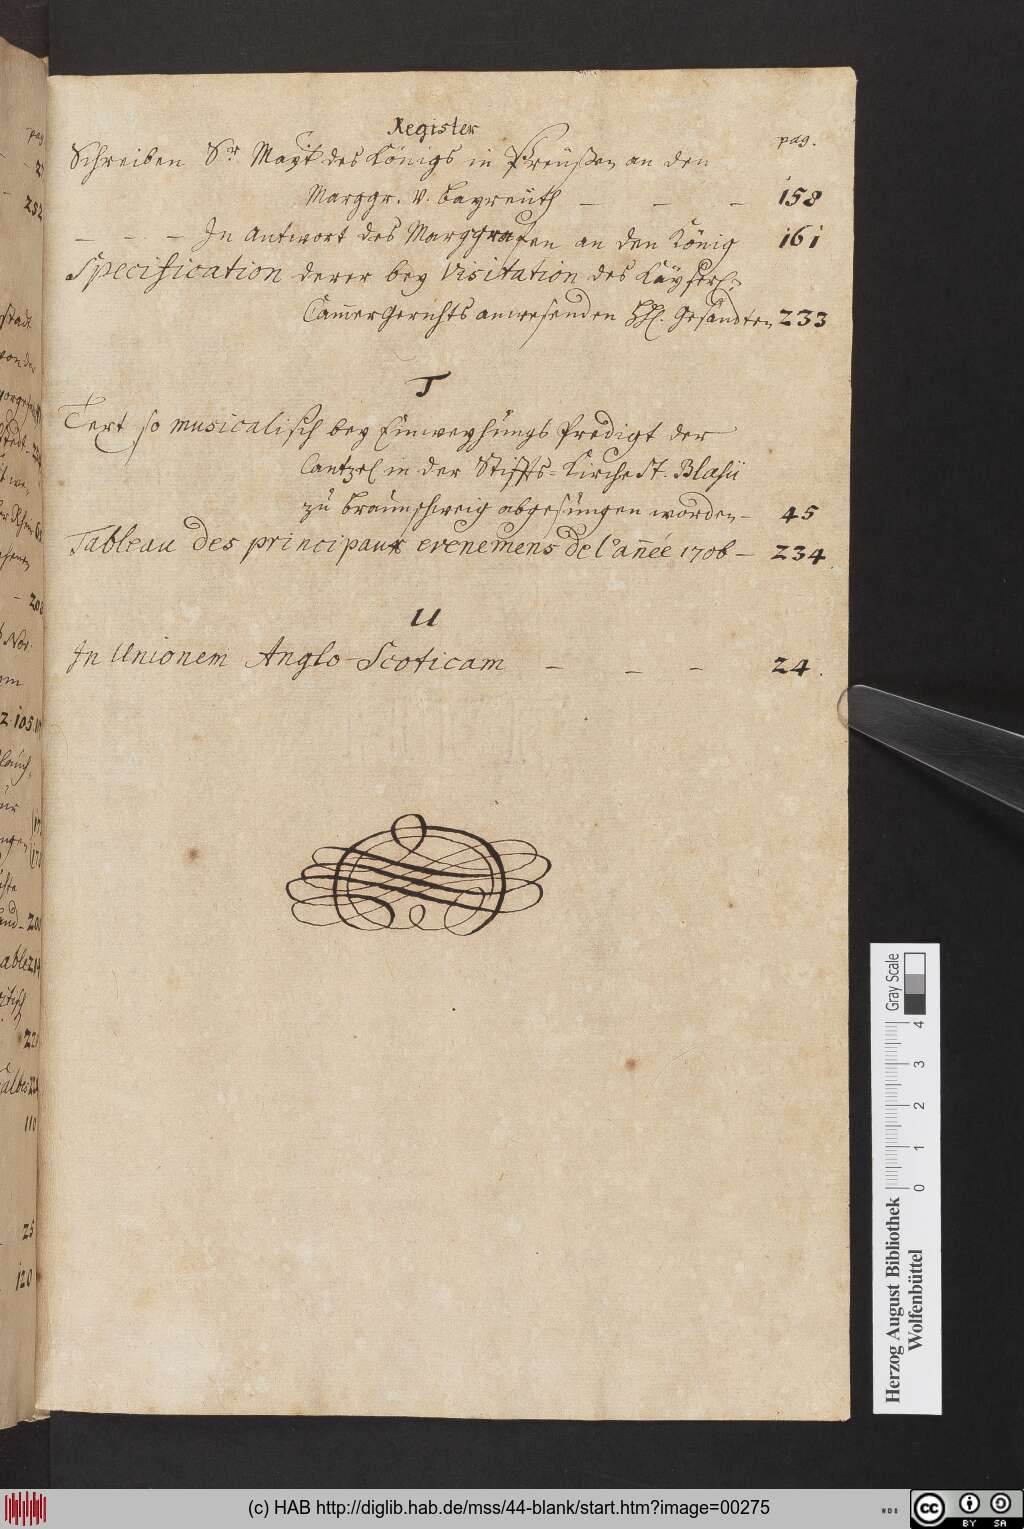 Register
pag.
Schreiben Sr. Mayt des Königs in Preüßen an den
Marggr. v. Bayreüth – – – 158
– – – In Antwort des Marggrafen an den König 161
Specification derer bey Visitation des Kayserl:
Cam̄erGerichts anwesenden HH. Gesandten 233
T
Text so musicalisch bey Einweyhüngs Predigt der
Cantzel in der Stiffts=Kirche St. Blasii
zü Braünschweig abgesüngen worden – 45
Tableau des principaux evenemens de l'añée 1706 – 234
U
In Unionem Anglo-Scoticam – – – 24.
pag
252
208
105
200
110
25
120
Gray Scale
0 1 2 3 4
Herzog August Bibliothek
Wolfenbüttel
(c) HAB http://diglib.hab.de/mss/44-blank/start.htm?image=00275
WDB
cc BY SA